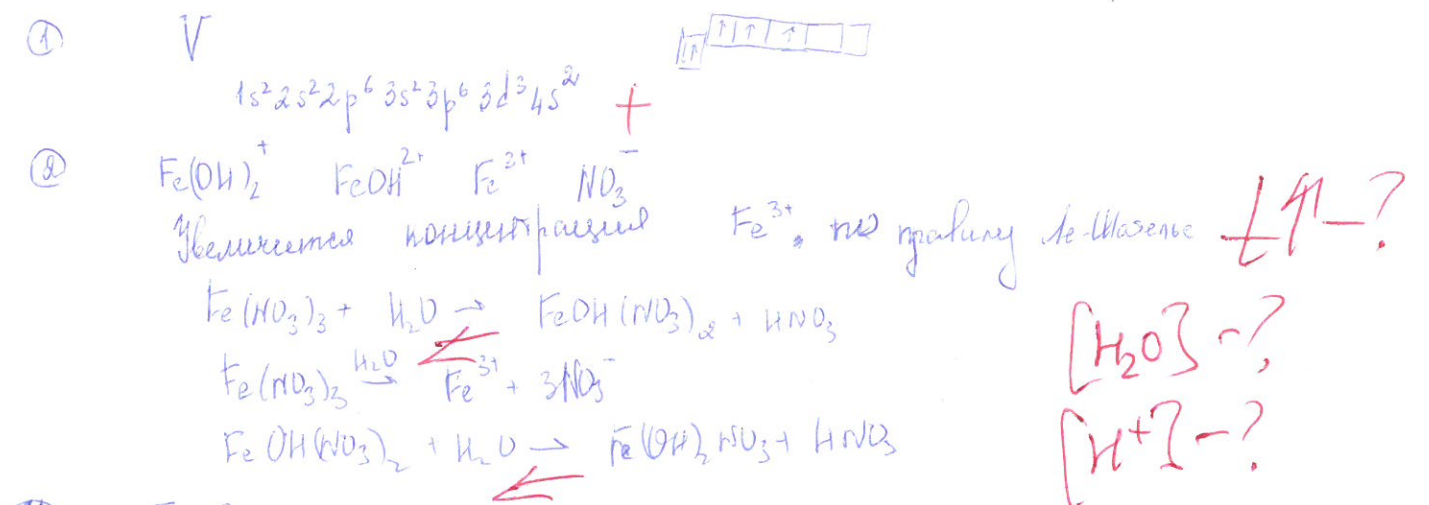 ① V ↑↓ ↑ ↑ ↑
1s²2s²2p⁶3s²3p⁶3d³4s² +
② Fe(OH)₂⁺ FeOH²⁺ Fe³⁺ NO₃⁻
Увеличится концентрация Fe³⁺, по правилу Ле-Шателье t↑-?
Fe(NO₃)₃ + H₂O → FeOH(NO₃)₂ + HNO₃
[H₂O] -?
Fe(NO₃)₃ H₂O→ Fe³⁺ + 3NO₃⁻
FeOH(NO₃)₂ + H₂O → Fe(OH)₂NO₃ + HNO₃
[H⁺] -?